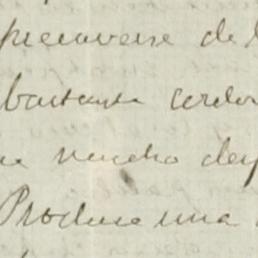 precaverse de l
bastante cerdo
mucho dep
Produce una